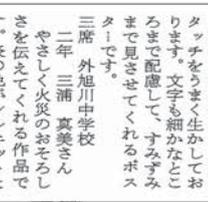 タッチをうまく生かしてお
ります。文字も細かなとこ
ろまで配慮して、すみずみ
まで見させてくれるポス
タ…です。
三席 外旭川中学校
二年 三浦 真美さん
やさしく火災のおそろし
さを伝えてくれる作品で